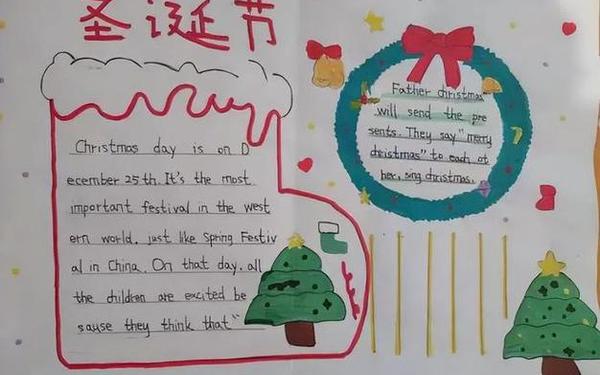 圣诞节
Christmas day is on D
ecember 25th. It's the most
important festival in the west
ern world. just like Spring Festiv
al in China. On that day. all
the children are excited be
sause they think that"
Father christmas
will send the pre
sents. They say "merry
christmas" to each ot
her, sing christmas.